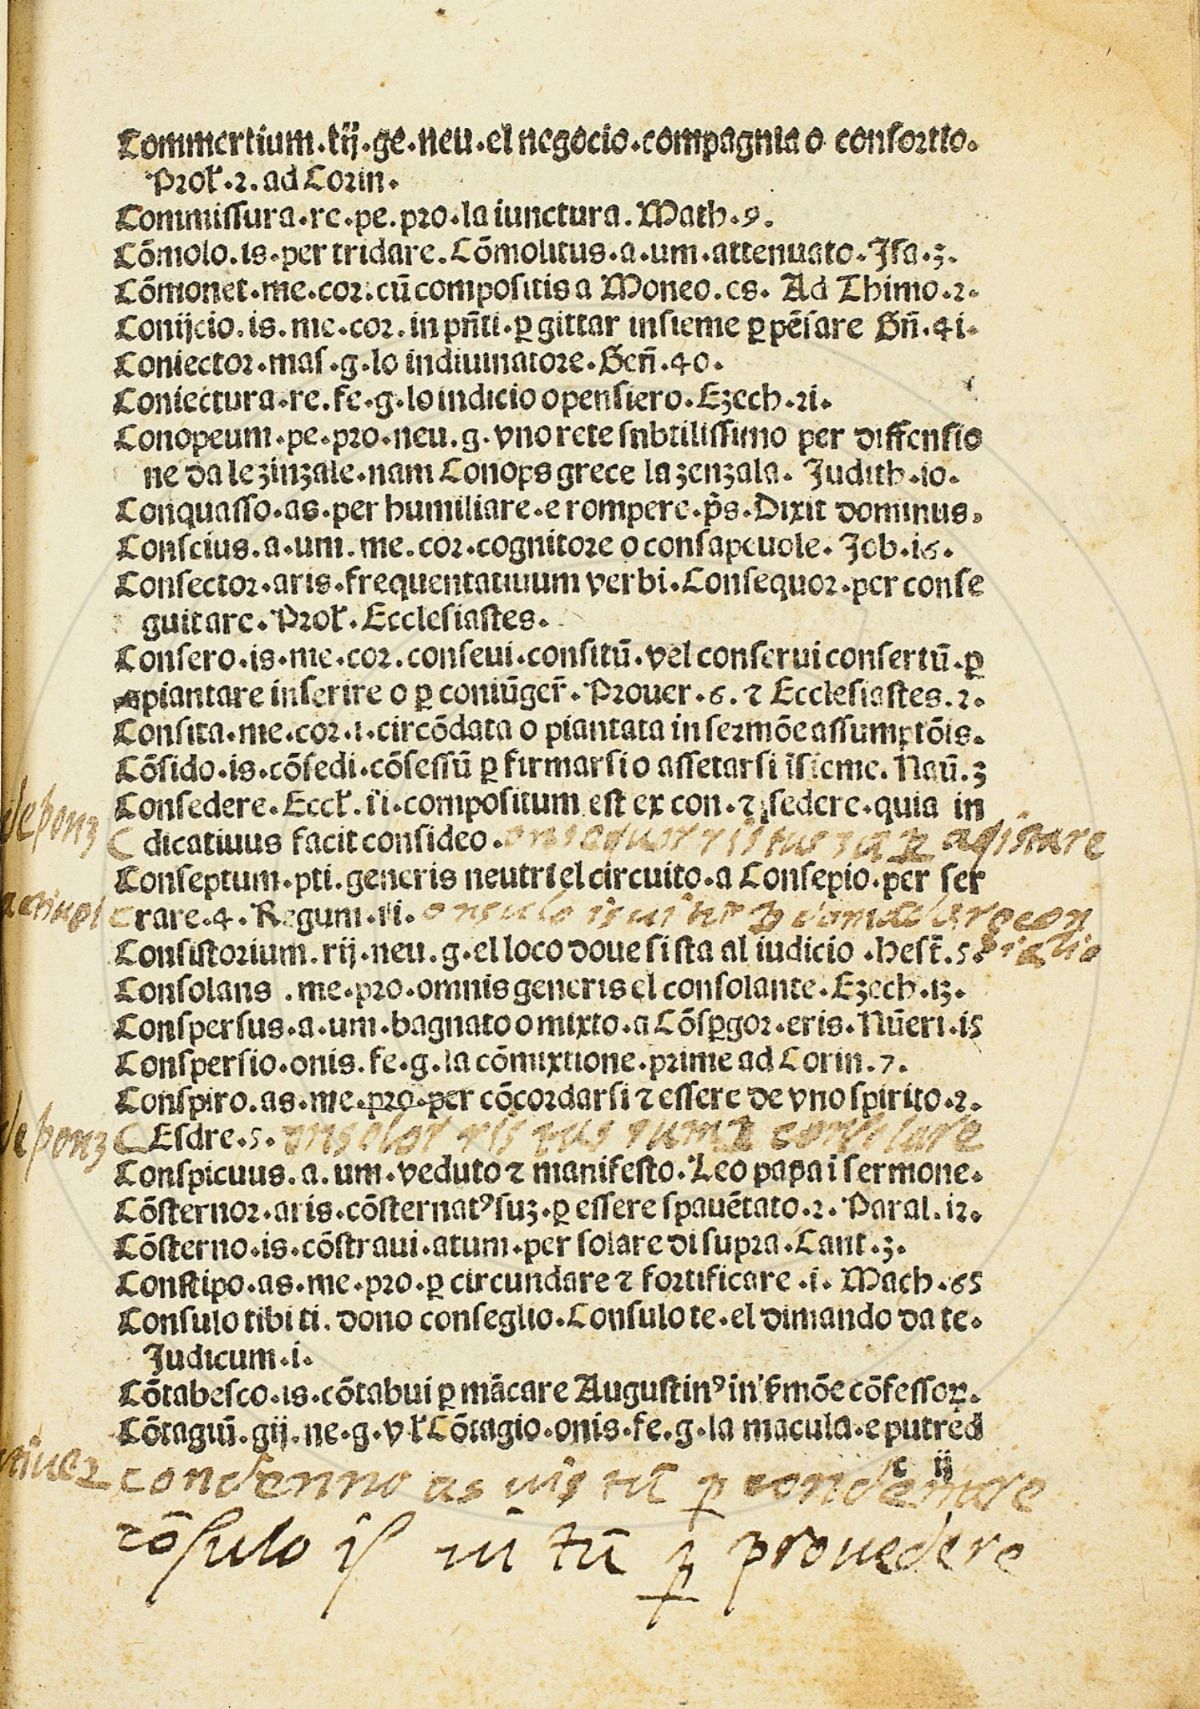 Commertium.tij.ge.neu.el negocio.compagnia o consortio.
Prol̃.2.ad Corin.
Commissura.re.pe.pro.la iunctura.Math.9.
Cõmolo.is.per tridare.Cõmolitus.a.um.attenuato.Isa.3.
Cõmonet.me.cor.cũ compositis a Moneo.es. Ad Thimo.2.
Conijcio.is.me.cor.in pñti.ꝑ gittar insieme ꝑ pẽsare Gñ.41.
Coniector.mas.g.lo indiuinatore.Geñ.40.
Coniectura.re.fe.g.lo indicio o pensiero.Ezech.21.
Conopeum.pe.pro.neu.g.vno rete snbtilissimo per diffensio
ne da le zinzale.nam Conops grece la zenzala. Judith.10.
Conquasso.as.per humiliare.e rompere.p̃s.Dixit dominus.
Conscius.a.um.me.cor.cognitore o consapeuole. Job.16.
Consector.aris.frequentatiuum verbi.Consequor.per conse
guitare.Prol̃.Ecclesiastes.
Consero.is.me.cor.conseui.consitũ.vel conserui consertũ.ꝑ
spiantare inserire o ꝑ coniũger̃.Prouer.6.⁊ Ecclesiastes.2.
Consita.me.cor.i.circõdata o piantata in sermõe assumptõis.
Cõsido.is.cõsedi.cõsessũ ꝑ firmarsi o assetarsi ĩsieme.Naũ.3
Consedere.Eccl̃.11.compositum est ex con.⁊ sedere.quia in
deponz dicatiuus facit consideo. ꝑ aqistare
Conseptum.pti.generis neutri el circuito.a Consepio.per ser
rare.4.Regum.11. onsulo is ui
Consistorium.rij.neu.g.el loco doue si sta al iudicio.Hest̃.5.
Consolans.me.pro.omnis generis el consolante.Ezech.13.
Conspersus.a.um.bagnato o mixto.a Cõsꝑgor.eris.Nũeri.15
Conspersio.onis.fe.g.la cõmixtione.prime ad Corin.7.
Conspiro.as.me.pro.per cõcordarsi ⁊ essere de vno spirito.2.
deponz Esdre.5. onsolor ris tus sum ꝑ consolare
Conspicuus.a.um.veduto ⁊ manifesto.Leo papa i sermone.
Cõsternor.aris.cõsternatꝰsuz.ꝑ essere spauẽtato.2.Paral.12.
Cõsterno.is.cõstraui.atum.per solare di supra.Cant.3.
Constipo.as.me.pro.ꝑ circundare ⁊ fortificare.i.Mach.65
Consulo tibi ti.dono conseglio.Consulo te.el dimando da te.
Judicum.i.
Cõtabesco.is.cõtabui ꝑ mãcare Augustinꝰ in ẜmõe cõfessoꝝ.
Cõtagiũ.gij.ne.g.vl̃ Cõtagio.onis.fe.g.la macula.e putredi
c ij
condenno as uis tũ ꝑ condemnare
cõsulo is ui tũ ꝑ prouedere